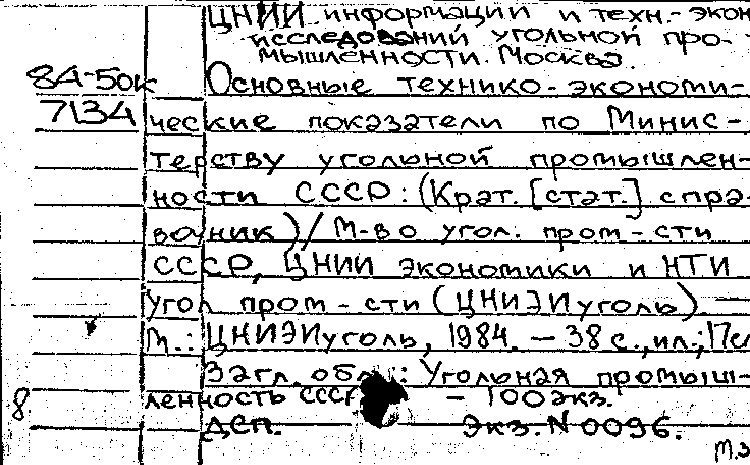 ЦНИИ информации и техн.-экон
исследований угольной про-
мышленности. Москва.
84-50к Основные технико-экономи-
7134 ческие показатели по Минис-
терству угольной промышлен-
ности СССР: (Крат. [стат.] спра
вочник) / М-во угол. пром-сти
СССР, ЦНИИ экономики и НТИ
угол пром-сти (ЦНИЭИуголь). —
М.: ЦНИЭИуголь, 1984. — 38 с., ил.;
Загл. обл.: Угольная промыш-
8 ленность СССР — 100 экз.
ДСП. Экз. N 0096.